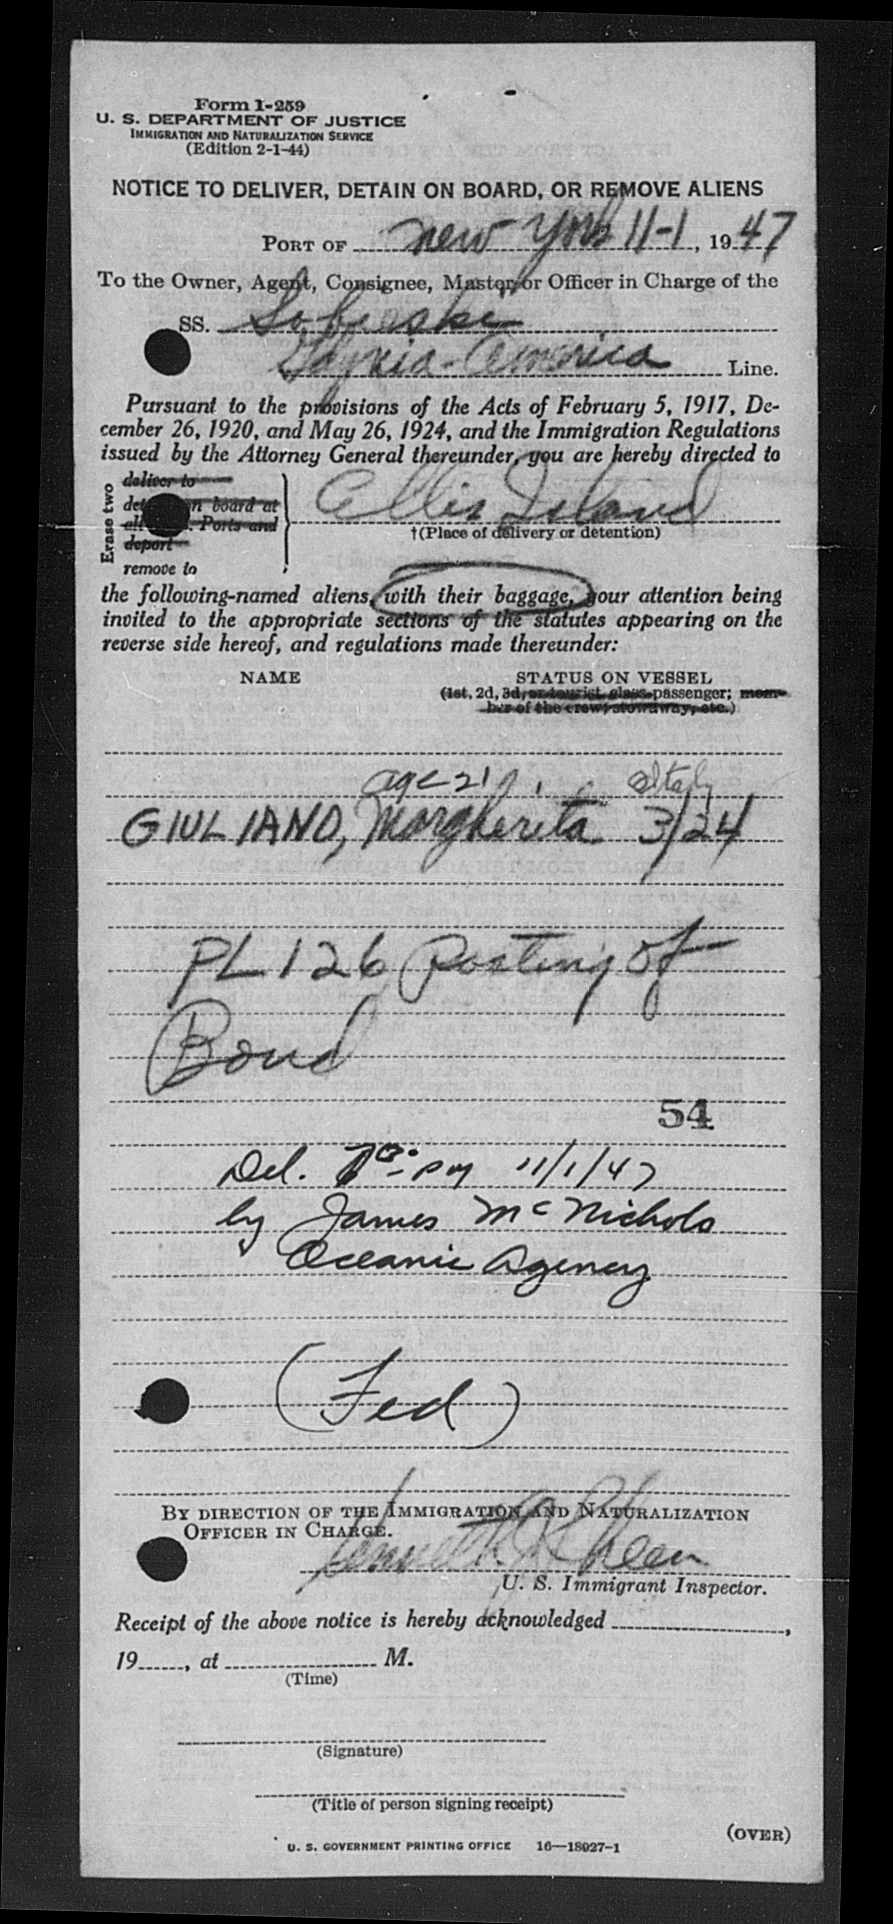 Form I-259
U. S. DEPARTMENT OF JUSTICE
IMMIGRATION AND NATURALIZATION SERVICE
(Edition 2-1-44)
NOTICE TO DELIVER, DETAIN ON BOARD, OR REMOVE ALIENS
PORT OF New York 11-1, 1947
To the Owner, Agent, Consignee, Master, or Officer in Charge of the
SS. Sobieski
Gdynia-America Line.
Pursuant to the provisions of the Acts of February 5, 1917, De-
cember 26, 1920, and May 26, 1924, and the Immigration Regulations
issued by the Attorney General thereunder, you are hereby directed to
Erase two
deliver to
on board at
Ports and
deport
remove to
Ellis Island
†(Place of delivery or detention)
the following-named aliens, with their baggage, your attention being
invited to the appropriate sections of the statutes appearing on the
reverse side hereof, and regulations made thereunder:
NAME STATUS ON VESSEL
(1st, 2d, 3d, or tourist class passenger; mem-
ber of the crew, stowaway, etc.)
age 21
GIULIANO, Margherita 3/24
PL 126 Posting of
Bond
54
Del. PM 11/1/47
by James McNichols
Oceanic Agency
(Fed)
BY DIRECTION OF THE IMMIGRATION AND NATURALIZATION
OFFICER IN CHARGE.
Kenneth
U. S. Immigrant Inspector.
Receipt of the above notice is hereby acknowledged ,
19 , at M.
(Time)
(Signature)
(Title of person signing receipt)
(OVER)
U. S. GOVERNMENT PRINTING OFFICE 16—18027-1